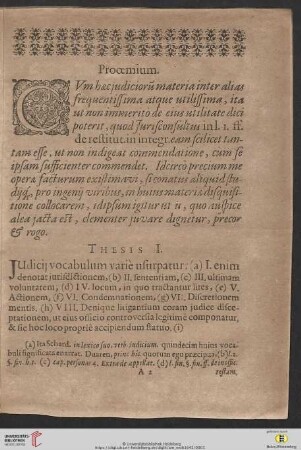 Prooemium.
CVm haec judiciorũ materia inter alias
frequentissima atque utilissima, ita
ut non immerito de eius utilitate dici
poterit, quod Jurisconsultus in l. 1. ff.
de restitut. in integr. eam scilicet tan-
tam esse, ut non indigeat commendatione, cum se
ipsam sufficienter commendet. Idcirco precium me
operae facturum existimavi, si conatus aliquid studijq́;
pro ingenij viribus, in huius materiae disquisi-
tione collocarem, idipsum igitur est u, quo auspice
alea jacta est, clementer juvare dignetur, precor
& rogo.
THESIS I.
JUdicij vocabulum variè usurpatur: (a) I. enim
denotat jurisdictionem, (b) II. sententiam, (c) III. ultimam
voluntatem, (d) IV. locum, in quo tractantur lites, (e) V.
Actionem, (f) VI. Condemnationem, (g) VII. Discretionem
mentis. (h) VIII. Denique litigantium coram judice discep-
tationem, ut eius officio controversia legitimè componatur,
& sic hoc loco propriè accipiendum statuo. (i)
(a) Ita Schard. in lexico suo. verb. judicium. quindecim huius voca-
buli significata enarrat. Duaren. prius his quatuor
§. fin. h. t. (c) cap. personas 4. Extra de appellat. (d) l. fin. §. fin. ff.
A 2 testam.
© Universitätsbibliothek Heidelberg